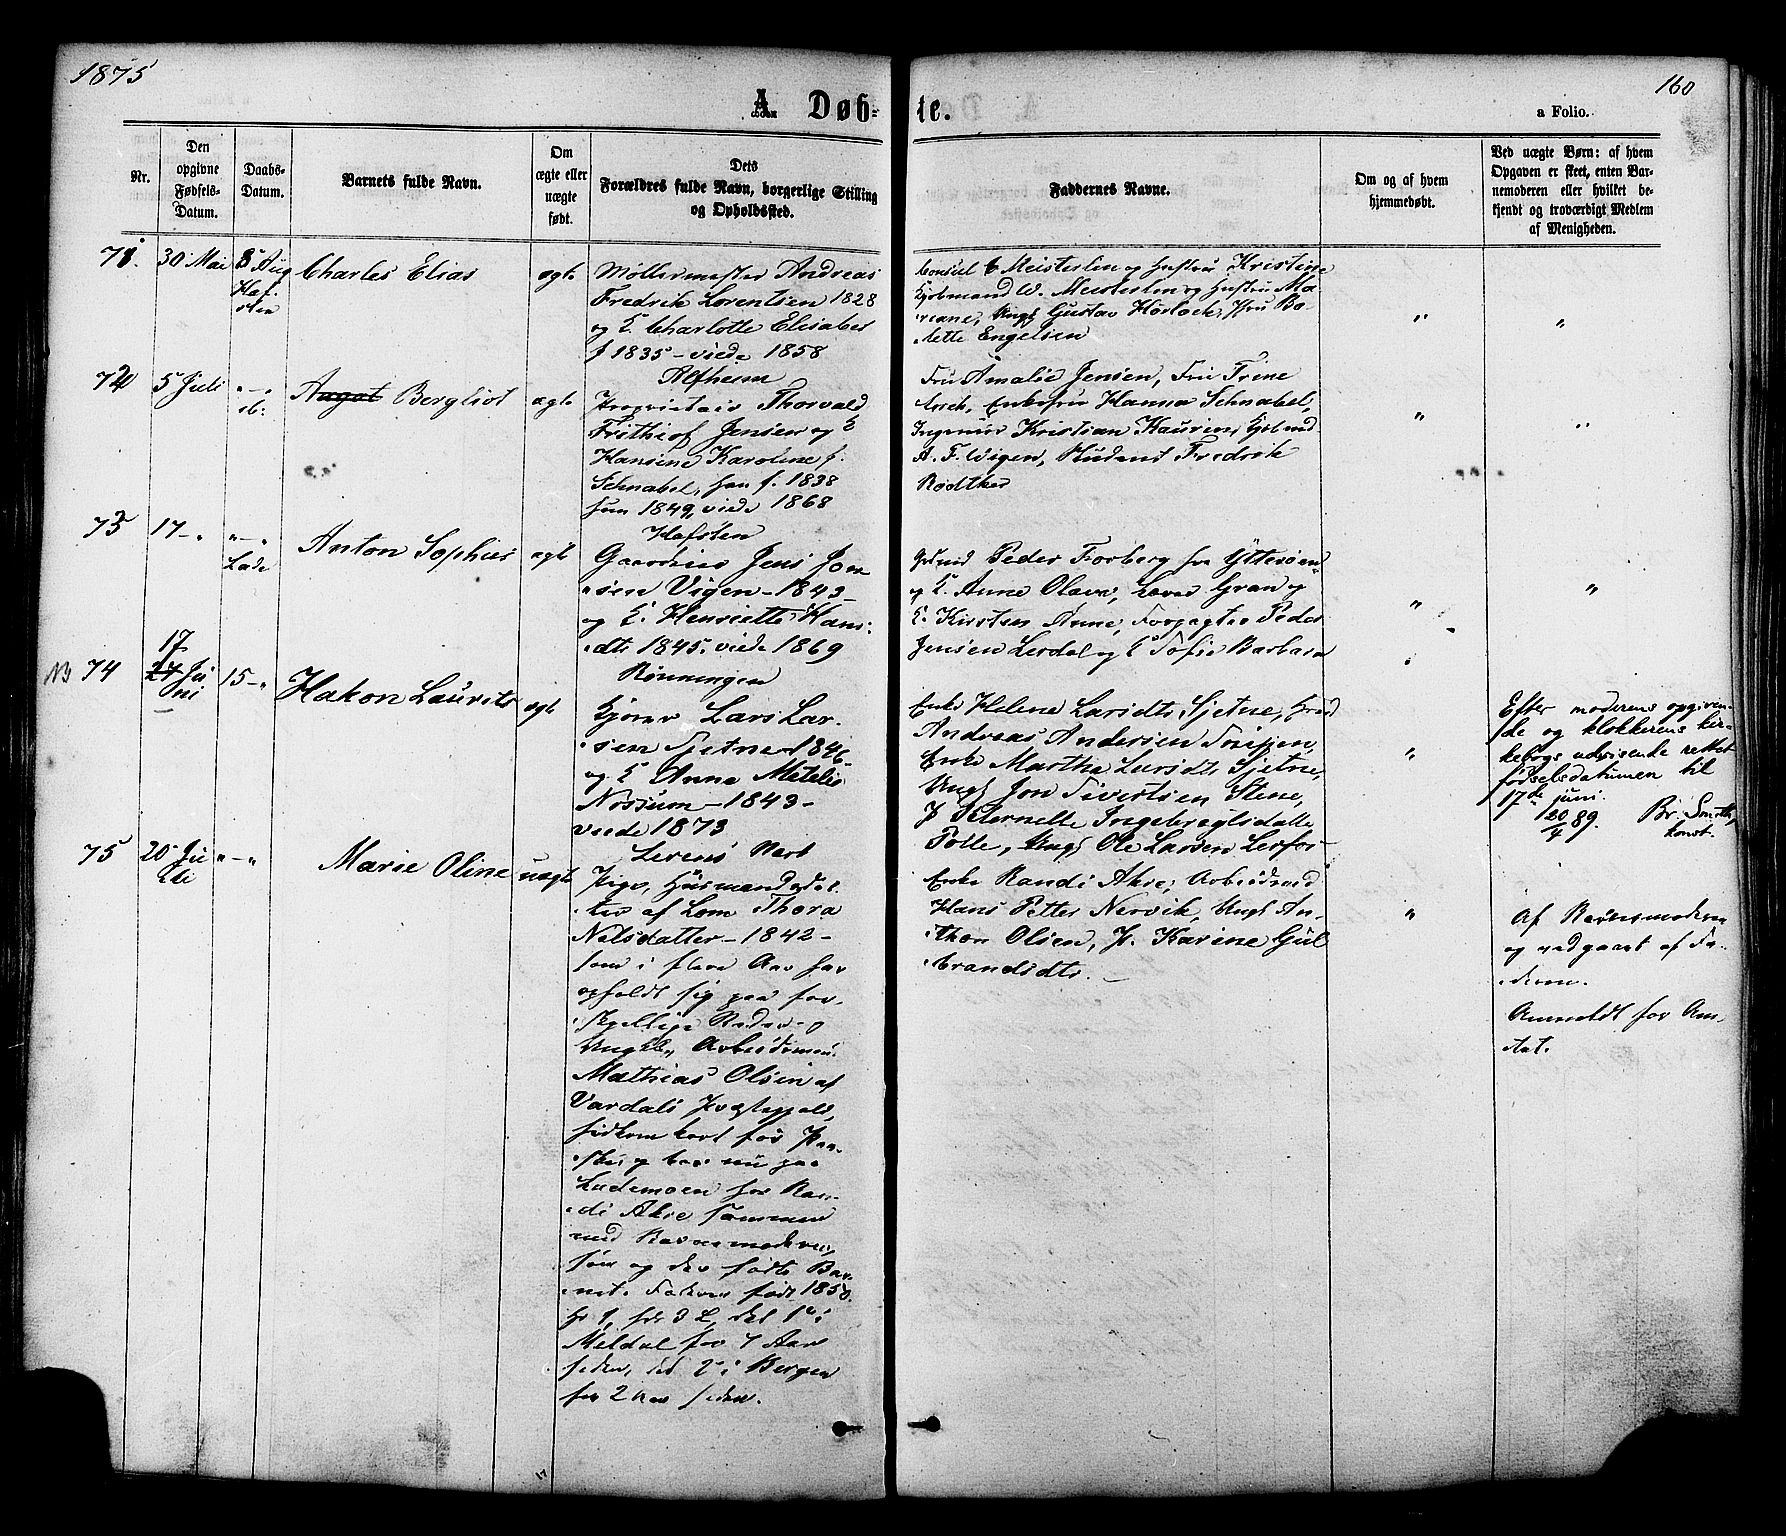 1875
160
A. Døb-
te.
a Folio.
Nr.
Den
opgivne
Fødsels-
Datum.
Daabs-
Datum.
Barnets fulde Navn.
Om
ægte eller
uægte
født.
Dets
Forældres fulde Navn, borgerlige Stilling
og Opholdssted.
Faddernes Navne.
Om og af hvem
hjemmedøbt.
Ved uægte Børn: af hvem
Opgaven er skeet, enten Bar-
nemoderen eller hvilket be-
kjendt og troværdigt Medlem
af Menigheden.
71. 30 Mai 8 Aug Charles Elias ægte
Møllermester Andreas
Fredrik Lorentsen 1828
og H. Charlotte Elisabet
f 1835 - viede 1858
Alfheim
Consul C Meisterlin og Hustru Kristine
Kjøbmand W. Meisterlin og Hustru Ma-
riane, Ungk Gustav
lette Engelsen
72 5 Juli Aagot Bergliot ægte
Proprietair Thorvald
Frithiof Jensen og H
Hansine Karoline f.
Schnabel, han f. 1838
hun 1849, viede 1868
Hafsten
Fru Amalie Jensen, Fru Trine
Enkefru Hanna Schnabel,
Ingeniør Kristian Kaurin, Kjøbmd
A. F. Wigen, Student Fredrik
Rodtker
73 17 - " "-"
Lade
Anton Sophus ægte
Gaardbr Jens Jen-
sen Vigen - 1843 -
og H. Henriette Hans-
dtr 1845, viede 1869
Rønningen
Peder Forberg fra Ytterøen
og H. Anne Olava, Gran og
H. Kirsten Anne, Forpagter Peder
Jensen Lerdal og H Sofie Barbara
NB 74 17
Ju
ni
15 - "
Hakon Laurits ægte
Lars Lar-
sen Sjetne 1846
og H Anna Metelie
Nossum - 1843 -
viede 1873
Enke Helene Larsdtr Sjetne,
Andreas Andersen
Enke Martha Larsdtr Sjetne,
Ungk Jon Sivertsen Stene,
P Peternelle Ingebregtsdatter
Ungk Ole Larsen Lerfos
Efter moderens opgiven-
de og klokkerens kir-
kebogs udvisende rettet
fødselsdatumen til
17de juni.
20/4 89. Br. Smith,
konst.
75 20 Ju
"-" Marie Oline uægte
Pige, Husmandsdat-
ter af Lom Thora
Nelsdatter - 1842 -
som i flere Aar har
opholdt sig paa for-
skjellige Steder -
Ungk, Arbeidsmand
Mathias Olsen af
Vardals Præstegjeld,
hidkom kort før Paa-
ske og boer nu paa
Lademoen hos Ran-
di Akre sammen
med Barnemoderen,
som og der fødte Bar-
net. Faderen født 1850.
Meldal for 7 Aar
siden, det 2 i Bergen
for 2 Aar siden.
Enke Randi Akre, Arbeidsmd
Hans Petter Nervik, Ungk An-
thon Olsen, P. Karine Gul
brandsdtr.
Af Barnemoderen
og vedgaaet af Fa-
deren.
Anmeldt for Am-
tet.